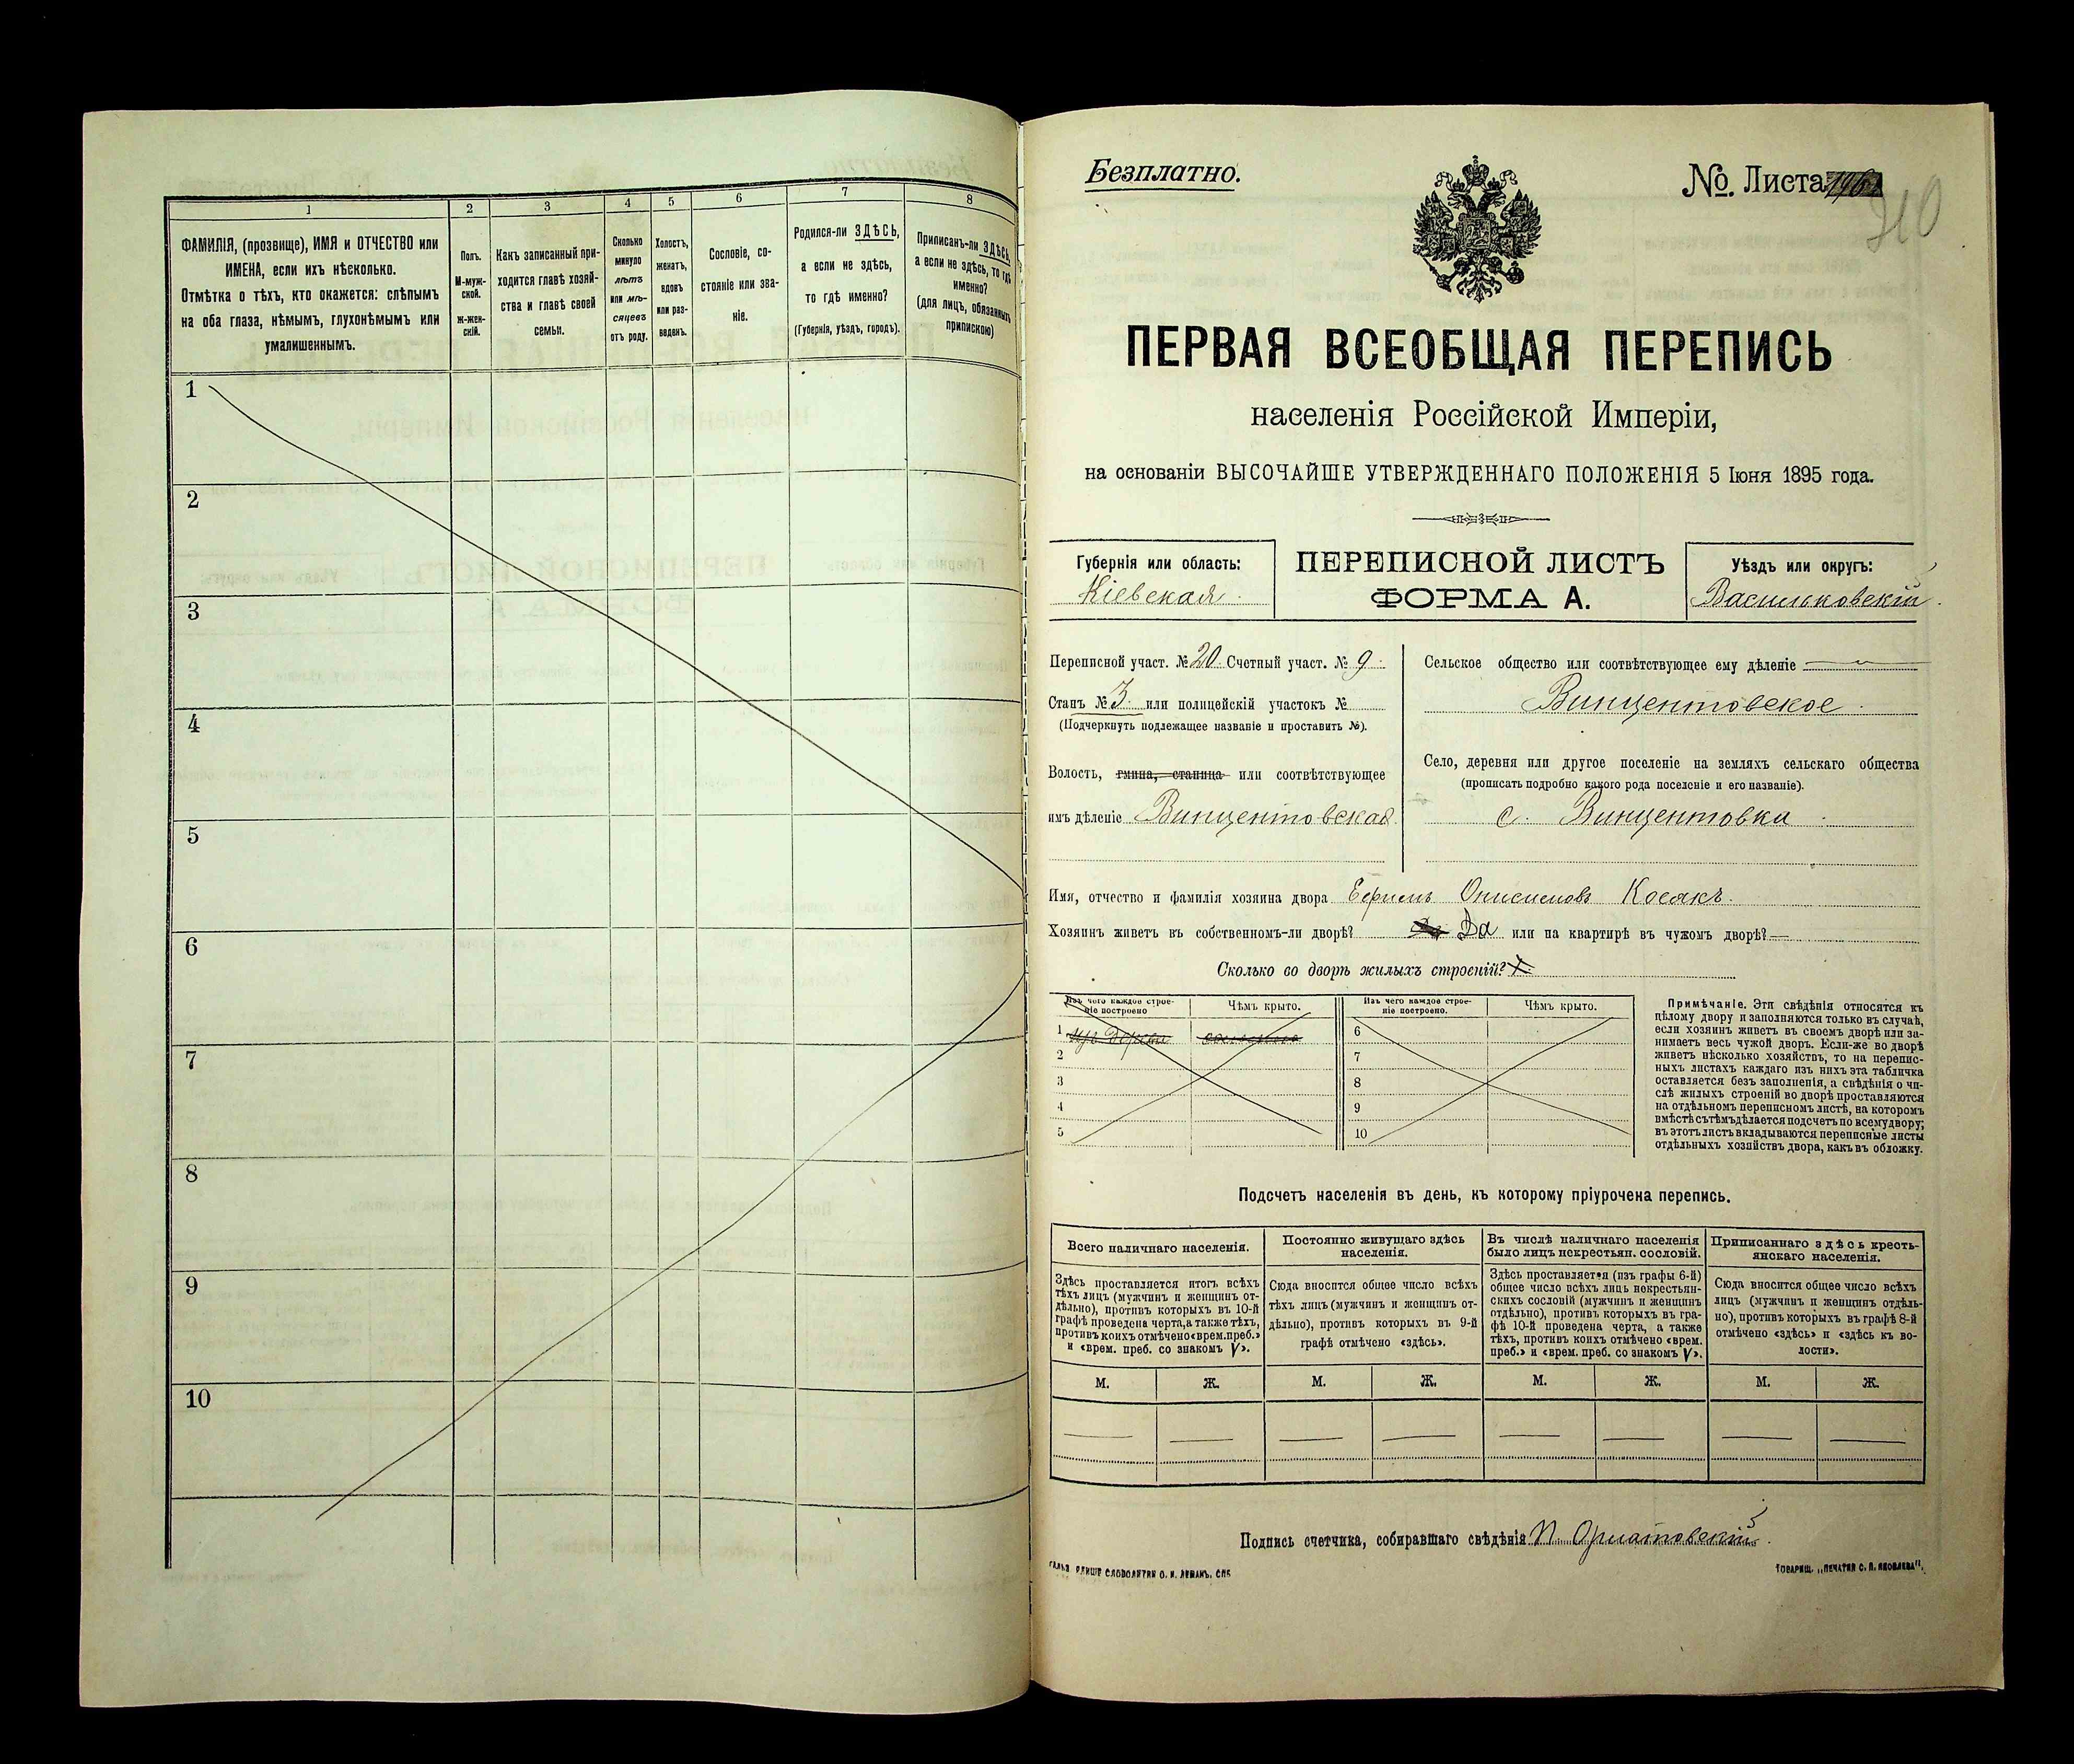 1
2
3
4
5
6
7
8
ФАМИЛІЯ, (прозвище), ИМЯ и ОТЧЕСТВО или
ИМЕНА, если ихъ нѣсколько.
Отмѣтка о тѣхъ, кто окажется: слѣпымъ
на оба глаза, нѣмымъ, глухонѣмымъ или
умалишеннымъ.
Полъ.
М-муж-
ской.
Ж-жен-
скій.
Какъ записанный при-
ходится главѣ хозяй-
ства и главѣ своей
семьи.
Сколько
минуло
лѣтъ
или мѣ-
сяцевъ
отъ роду.
Холостъ,
женатъ,
вдовъ
или раз-
веденъ.
Сословіе, со-
стояніе или зва-
ніе.
Родился-ли ЗДѢСЬ,
а если не здѣсь,
то гдѣ именно?
(Губернія, уѣздъ, городъ).
Приписанъ-ли ЗДѢСЬ,
а если не здѣсь, то гдѣ
именно?
(для лицъ, обязанныхъ
припискою)
1
2
3
4
5
6
7
8
9
10
Безплатно.
№. Листа
210
ПЕРВАЯ ВСЕОБЩАЯ ПЕРЕПИСЬ
населенія Россійской Имперіи,
на основаніи ВЫСОЧАЙШЕ УТВЕРЖДЕННАГО ПОЛОЖЕНІЯ 5 Іюня 1895 года.
Губернія или область:
Кіевская
ПЕРЕПИСНОЙ ЛИСТЪ
ФОРМА А.
Уѣздъ или округъ:
Васильковскій
Переписной участ. № 20. Счетный участ. № 9
Станъ № 3. или полицейскій участокъ №
(Подчеркнуть подлежащее названіе и проставить №).
Волость, гмина, станица или соотвѣтствующее
имъ дѣленіе Винцентовская
Сельское общество или соотвѣтствующее ему дѣленіе
Винцентовское
Село, деревня или другое поселеніе на земляхъ сельскаго общества
(прописать подробно какого рода поселеніе и его названіе).
с. Винцентовка
Имя, отчество и фамилія хозяина двора Ефимъ Онисимовъ Косякъ.
Хозяинъ живетъ въ собственномъ-ли дворѣ? Да или на квартирѣ въ чужомъ дворѣ? —
Сколько во дворѣ жилыхъ строеній?
Изъ чего каждое строе-
ніе построено
Чѣмъ крыто.
Изъ чего каждое строе-
ніе построено.
Чѣмъ крыто.
1
2
3
4
5
6
7
8
9
10
Примѣчаніе. Эти свѣдѣнія относятся къ
цѣлому двору и заполняются только въ случаѣ,
если хозяинъ живетъ въ своемъ дворѣ или за-
нимаетъ весь чужой дворъ. Если-же во дворѣ
живетъ нѣсколько хозяйствъ, то на перепис-
ныхъ листахъ каждаго изъ нихъ эта табличка
оставляется безъ заполненія, а свѣдѣнія о чи-
слѣ жилыхъ строеній во дворѣ проставляются
на отдѣльномъ переписномъ листѣ, на которомъ
вмѣстѣ съ тѣмъ дѣлается подсчетъ по всему двору;
въ этотъ листъ вкладываются переписные листы
отдѣльныхъ хозяйствъ двора, какъ въ обложку.
Подсчетъ населенія въ день, къ которому пріурочена перепись.
Всего наличнаго населенія.
Постоянно живущаго здѣсь
населенія.
Въ числѣ наличнаго населенія
было лицъ некрестьян. сословій.
Приписаннаго здѣсь кресть-
янскаго населенія.
Здѣсь проставляется итогъ всѣхъ
тѣхъ лицъ (мужчинъ и женщинъ от-
дѣльно), противъ которыхъ въ 10-й
графѣ проведена черта, а также тѣхъ,
противъ коихъ отмѣчено «врем. преб.»
и «врем. преб. со знакомъ V».
Сюда вносится общее число всѣхъ
тѣхъ лицъ (мужчинъ и женщинъ от-
дѣльно), противъ которыхъ въ 9-й
графѣ отмѣчено «здѣсь».
Здѣсь проставляется (изъ графы 6-й)
общее число всѣхъ лицъ некрестьян-
скихъ сословій (мужчинъ и женщинъ
отдѣльно), противъ которыхъ въ гра-
фѣ 10-й проведена черта, а также
тѣхъ, противъ коихъ отмѣчено «врем.
преб.» и «врем. преб. со знакомъ V».
Сюда вносится общее число всѣхъ
лицъ (мужчинъ и женщинъ отдѣль-
но), противъ которыхъ въ графѣ 8-й
отмѣчено «здѣсь» и «здѣсь къ во-
лости».
М. Ж. М. Ж. М. Ж. М. Ж.
Подпись счетчика, собиравшаго свѣдѣнія
СЛОВОЛИТНЯ О. И. ЛЕМАНЪ, СПБ
ТОВАРИЩ. „ПЕЧАТНЯ С. П. ЯКОВЛЕВА".